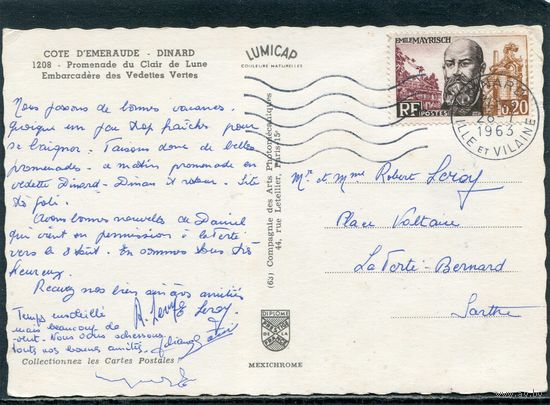 COTE D'EMERAUDE - DINARD
1208 - Promenade du Clair de Lune
Embarcadère des Vedettes Vertes
LUMICAP
COULEURS NATURELLES
EMILE MAYRISCH
RF POSTES 0,20
28-7
1963
ILLE ET VILAINE
Nous passons de bonnes vacances.
Quoique un peu trop fraîches pour
se baigner. Faisons donc de belles
promenades. ce matin promenade en
vedette Dinard-Dinan et retour. Site
très joli.
Avons bonnes nouvelles de Daniel
qui vient en permission à la Ferté
vers le 8 Août. En sommes tous très
heureux.
Recevez nos bien sincères amitiés
Temps ensoleillé
mais beaucoup de
vent. Nous vous adressons
toutes nos bonnes amitiés.
Leroy
Collectionnez les Cartes Postales
(63) Compagnie des Arts Photomécaniques
44, rue Letellier, Paris 15e
DIPLOME
PRESTIGE
DE LA
FRANCE
MEXICHROME
Mr et Mme Robert Leroy
Place Voltaire
La Ferté-Bernard
Sarthe